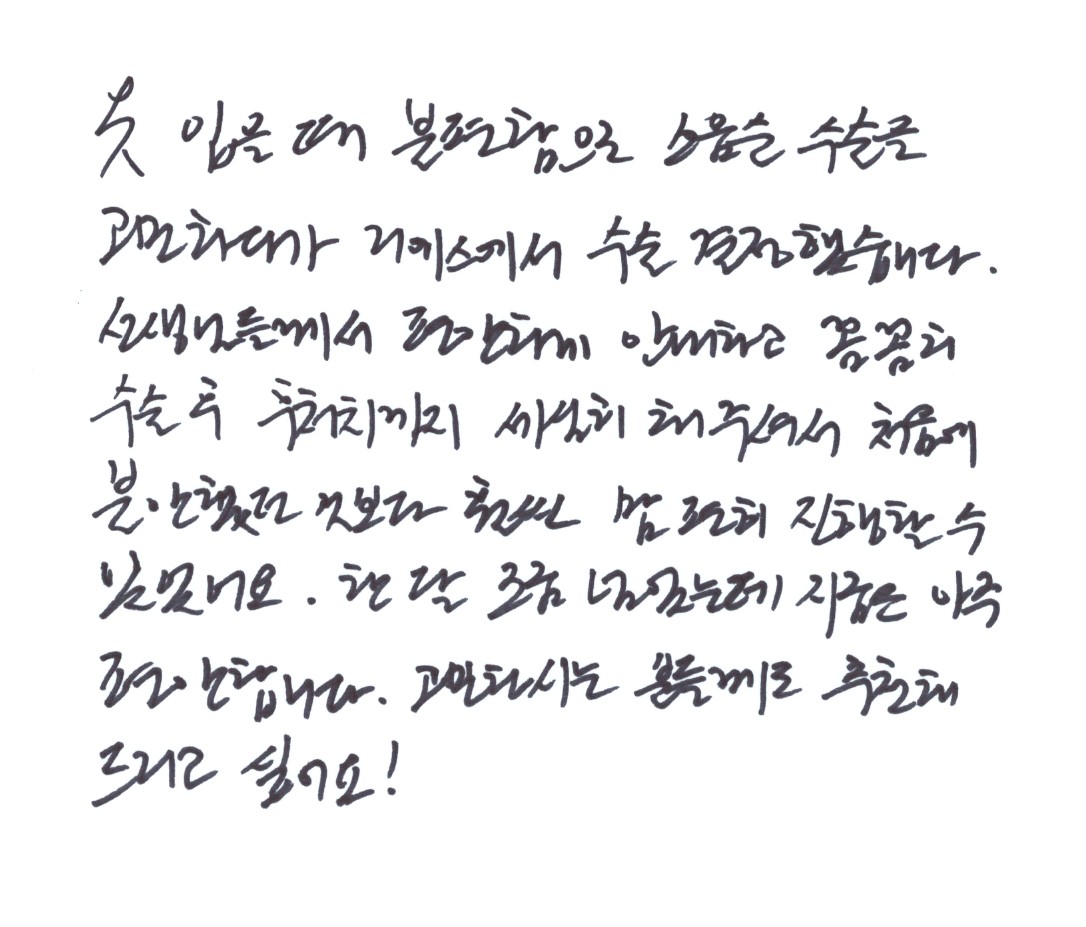 옷 입을 때 불편함으로 소음순 수술을
고민하다가 리에스에서 수술 결정했습니다.
선생님들께서 편안하게 안내하고 꼼꼼히
수술 후 후처치까지 세심히 해주셔서 처음에
불안했던 것보다 훨씬 맘 편히 진행할 수
있었어요. 한 달 조금 넘었는데 지금은 아주
편안합니다. 고민하시는 분들께도 추천해
드리고 싶어요!